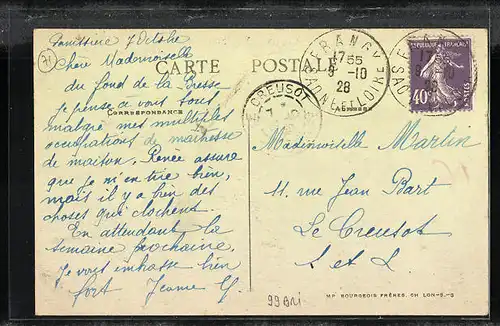 71
7 Octobre
Chère Mademoiselle
CARTE POSTALE
du fond de la Bresse
je pense à vous tous
CORRESPONDANCE
malgré mes multiples
occupations de maîtresse
de maison. Renée assure
que je m'en tire bien,
mais il y a bien des
choses qui clochent.
En attendant la
semaine prochaine,
je vous embrasse bien
fort Jeanne
17 55
9-10
28
SAONE-ET-LOIRE
LE CREUSOT
RÉPUBLIQUE FRANÇAISE
40c
POSTES
ADRESSE
Mademoiselle Martin
11 rue Jean Bart
Le Creusot
S et L
99 Bri
MP BOURGEOIS FRÈRES, CH LON-S-S